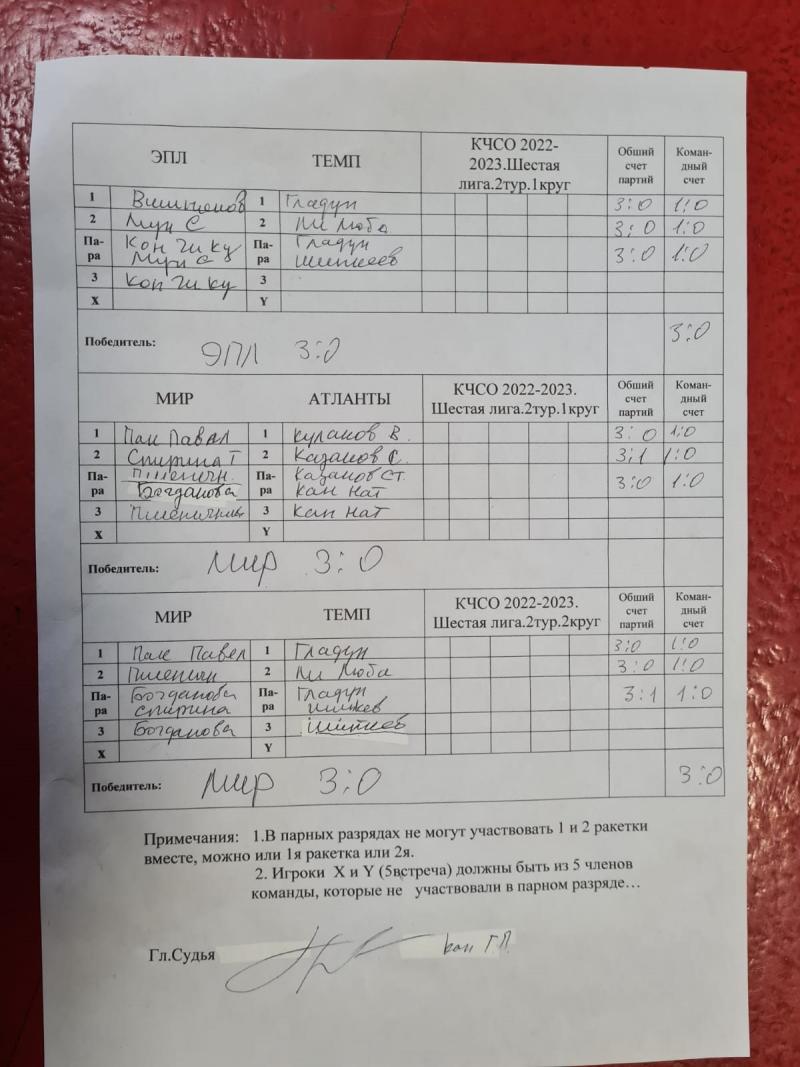 ЭПЛ ТЕМП КЧСО 2022-2023.Шестая лига.2тур.1круг Обший счет партий Коман-дный счет
1 1 Гладун 3:0 1:0
2 Мун С 2 Ли Люба 3:0 1:0
Па-ра Кон Чи ку Па-ра Гладун 3:0 1:0
Мун С Шиткеев
3 Кон Чи ку 3
X Y
Победитель: ЭПЛ 3:0 3:0
МИР АТЛАНТЫ КЧСО 2022-2023. Шестая лига.2тур.1круг Обший счет партий Коман-дный счет
1 Пак Павел 1 Кулаков В. 3:0 1:0
2 Спирина Т 2 Казаков С. 3:1 1:0
Па-ра Пшеничн. Па-ра Казаков Ст. 3:0 1:0
Богданова Кан Нат
3 3 Кан Нат
X Y
Победитель: МИР 3:0
МИР ТЕМП КЧСО 2022-2023. Шестая лига.2тур.2круг Обший счет партий Коман-дный счет
1 Пак Павел 1 Гладун 3:0 1:0
2 Пшеничн 2 Ли Люба 3:0 1:0
Па-ра Богданова Па-ра Гладун 3:1 1:0
Спирина
3 Богданова 3 Шиткеев
X Y
Победитель: Мир 3:0 3:0
Примечания: 1.В парных разрядах не могут участвовать 1 и 2 ракетки
вместе, можно или 1я ракетка или 2я.
2. Игроки X и Y (5встреча) должны быть из 5 членов
команды, которые не участвовали в парном разряде…
Гл.Судья Кан Г.П.